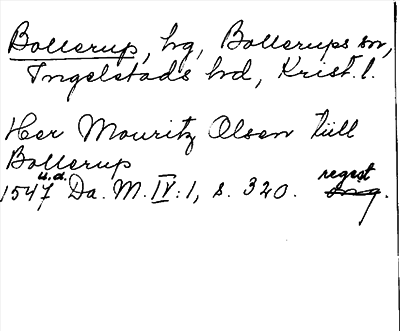 Bollerup, hg, Bollerups sn,
Ingelstads hd, Krist. l.
Her Mouritz Olsen tiill
Bollerup
1547 u.d. Da. M. IV:1, s. 320. regest